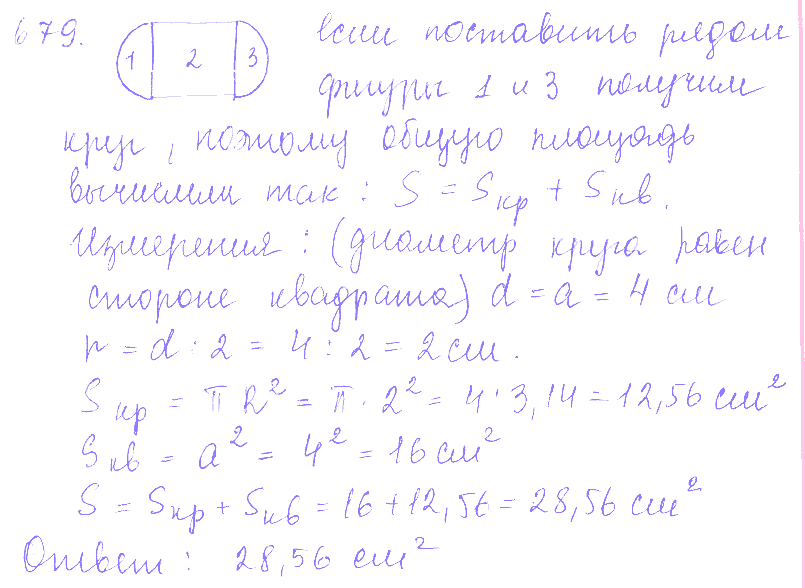 679. 1 2 3 если поставить рядом
фигуры 1 и 3 получим
круг, поэтому общую площадь
вычислили так: S = Sкр + Sкв.
Измерения: (диаметр круга равен
стороне квадрата) d = a = 4 см
r = d : 2 = 4 : 2 = 2 см.
Sкр = π R² = π · 2² = 4 · 3,14 = 12,56 см²
Sкв = a² = 4² = 16 см²
S = Sкр + Sкв = 16 + 12,56 = 28,56 см²
Ответ: 28,56 см²